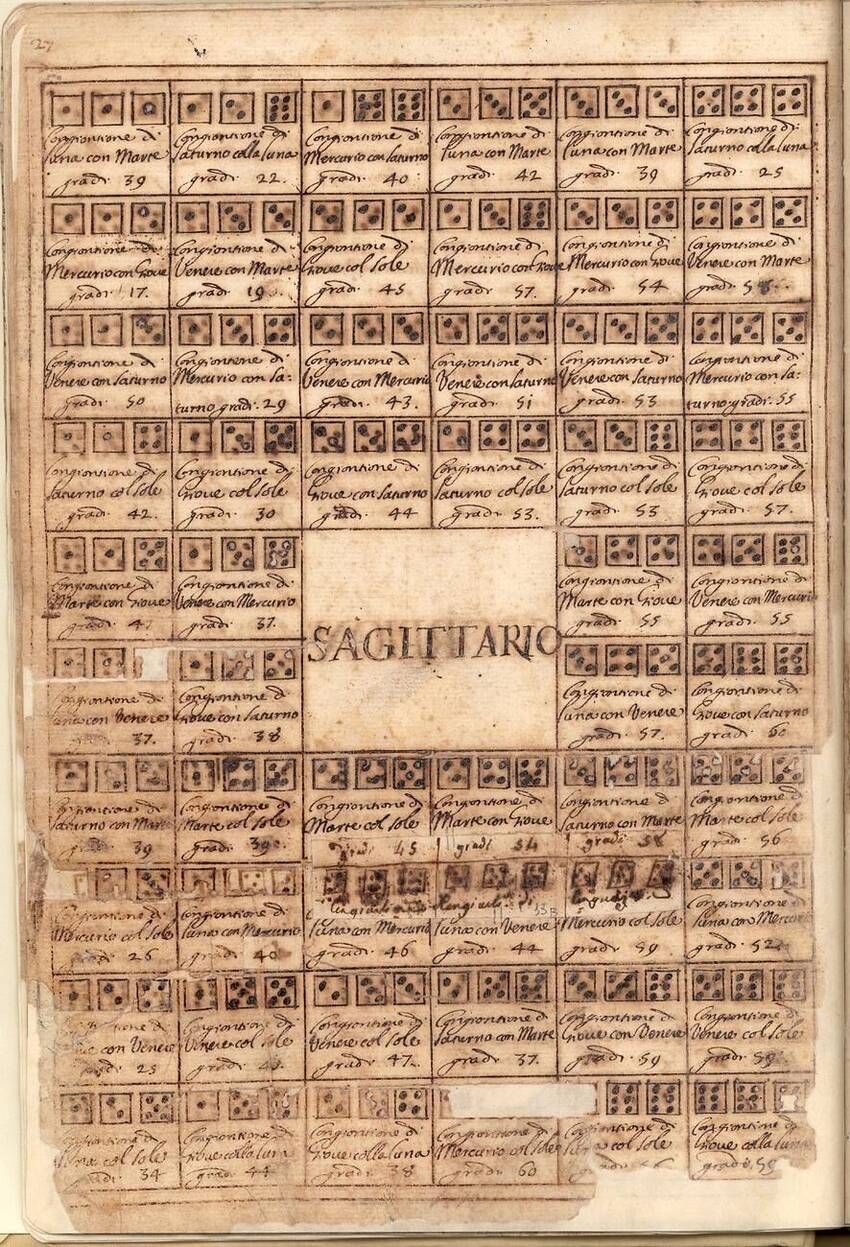 27
Congiontione di
Luna con Marte
gradi 39
Congiontione di
Saturno colla luna
gradi 22.
Congiontione di
Mercurio con Saturno
gradi 40
Congiontione di
luna con Marte
gradi 42
Congiontione di
luna con Marte
gradi 39
Congiontione di
Saturno colla luna
gradi 25
Congiontione di
Mercurio con Giove
gradi 17.
Congiontione di
Venere con Marte
gradi 19
Congiontione di
Giove col sole
gradi 45
Congiontione di
Mercurio con Giove
gradi 57.
Congiontione di
Mercurio con Giove
gradi 54
Congiontione di
Venere con Marte
gradi
Congiontione di
Venere con Saturno
gradi 50
Congiontione di
Mercurio con Sa:
turno gradi. 29
Congiontione di
Venere con Mercurio
gradi 43.
Congiontione di
Venere con Saturno
gradi 51
Congiontione di
Venere con Saturno
gradi 53
Congiontione di
Mercurio con Sa:
turno gradi. 55
Congiontione di
Saturno col Sole
gradi 42.
Congiontione di
Giove col sole
gradi 30
Congiontione di
Giove con Saturno
gradi 44
Congiontione di
Saturno col Sole
gradi 53.
Congiontione di
Saturno col sole
gradi 53
Congiontione di
Giove col sole
gradi 57.
Congiontione di
Marte con Giove
gradi
Congiontione di
Venere con Mercurio
gradi 37.
SAGITTARIO
Congiontione di
Marte con Giove
gradi 55
Congiontione di
Venere con Mercurio
gradi 55
Congiontione di
Luna con Venere
37.
Congiontione di
Giove con Saturno
gradi 38
Congiontione di
Luna con Venere
gradi 57.
Congiontione di
Giove con Saturno
gradi 60
Congiontione di
Saturno con Marte
gradi 39
Congiontione di
Marte col Sole
gradi 39
Congiontione di
Marte col Sole
gradi 45
Congiontione di
Marte con Giove
gradi 54
Congiontione di
Saturno con Marte
gradi 58
Congiontione di
Marte col Sole
gradi 56
Congiontione di
Mercurio col Sole
gradi 26
Congiontione di
Luna con Mercurio
gradi 40
Luna con Mercurio
gradi 46
Luna con Venere
gradi 44
Mercurio col Sole
gradi 59
Congiontione di
Luna con Mercurio
gradi 52
di
con Venere
gradi 25
Congiontione di
Venere col Sole
gradi
Congiontione di
Venere col Sole
gradi 47.
Congiontione di
Saturno con Marte
gradi 37.
Congiontione di
Giove con Venere
gradi 59
Congiontione di
Venere col Sole
gradi 59
Congiontione di
Luna col Sole
gradi 34
Congiontione di
Giove colla luna
gradi 44
Congiontione di
Giove colla luna
gradi 38
Congiontione di
Mercurio col Sole
gradi 60
Congiontione di
Luna col Sole
Congiontione di
Giove colla luna
gradi. 59